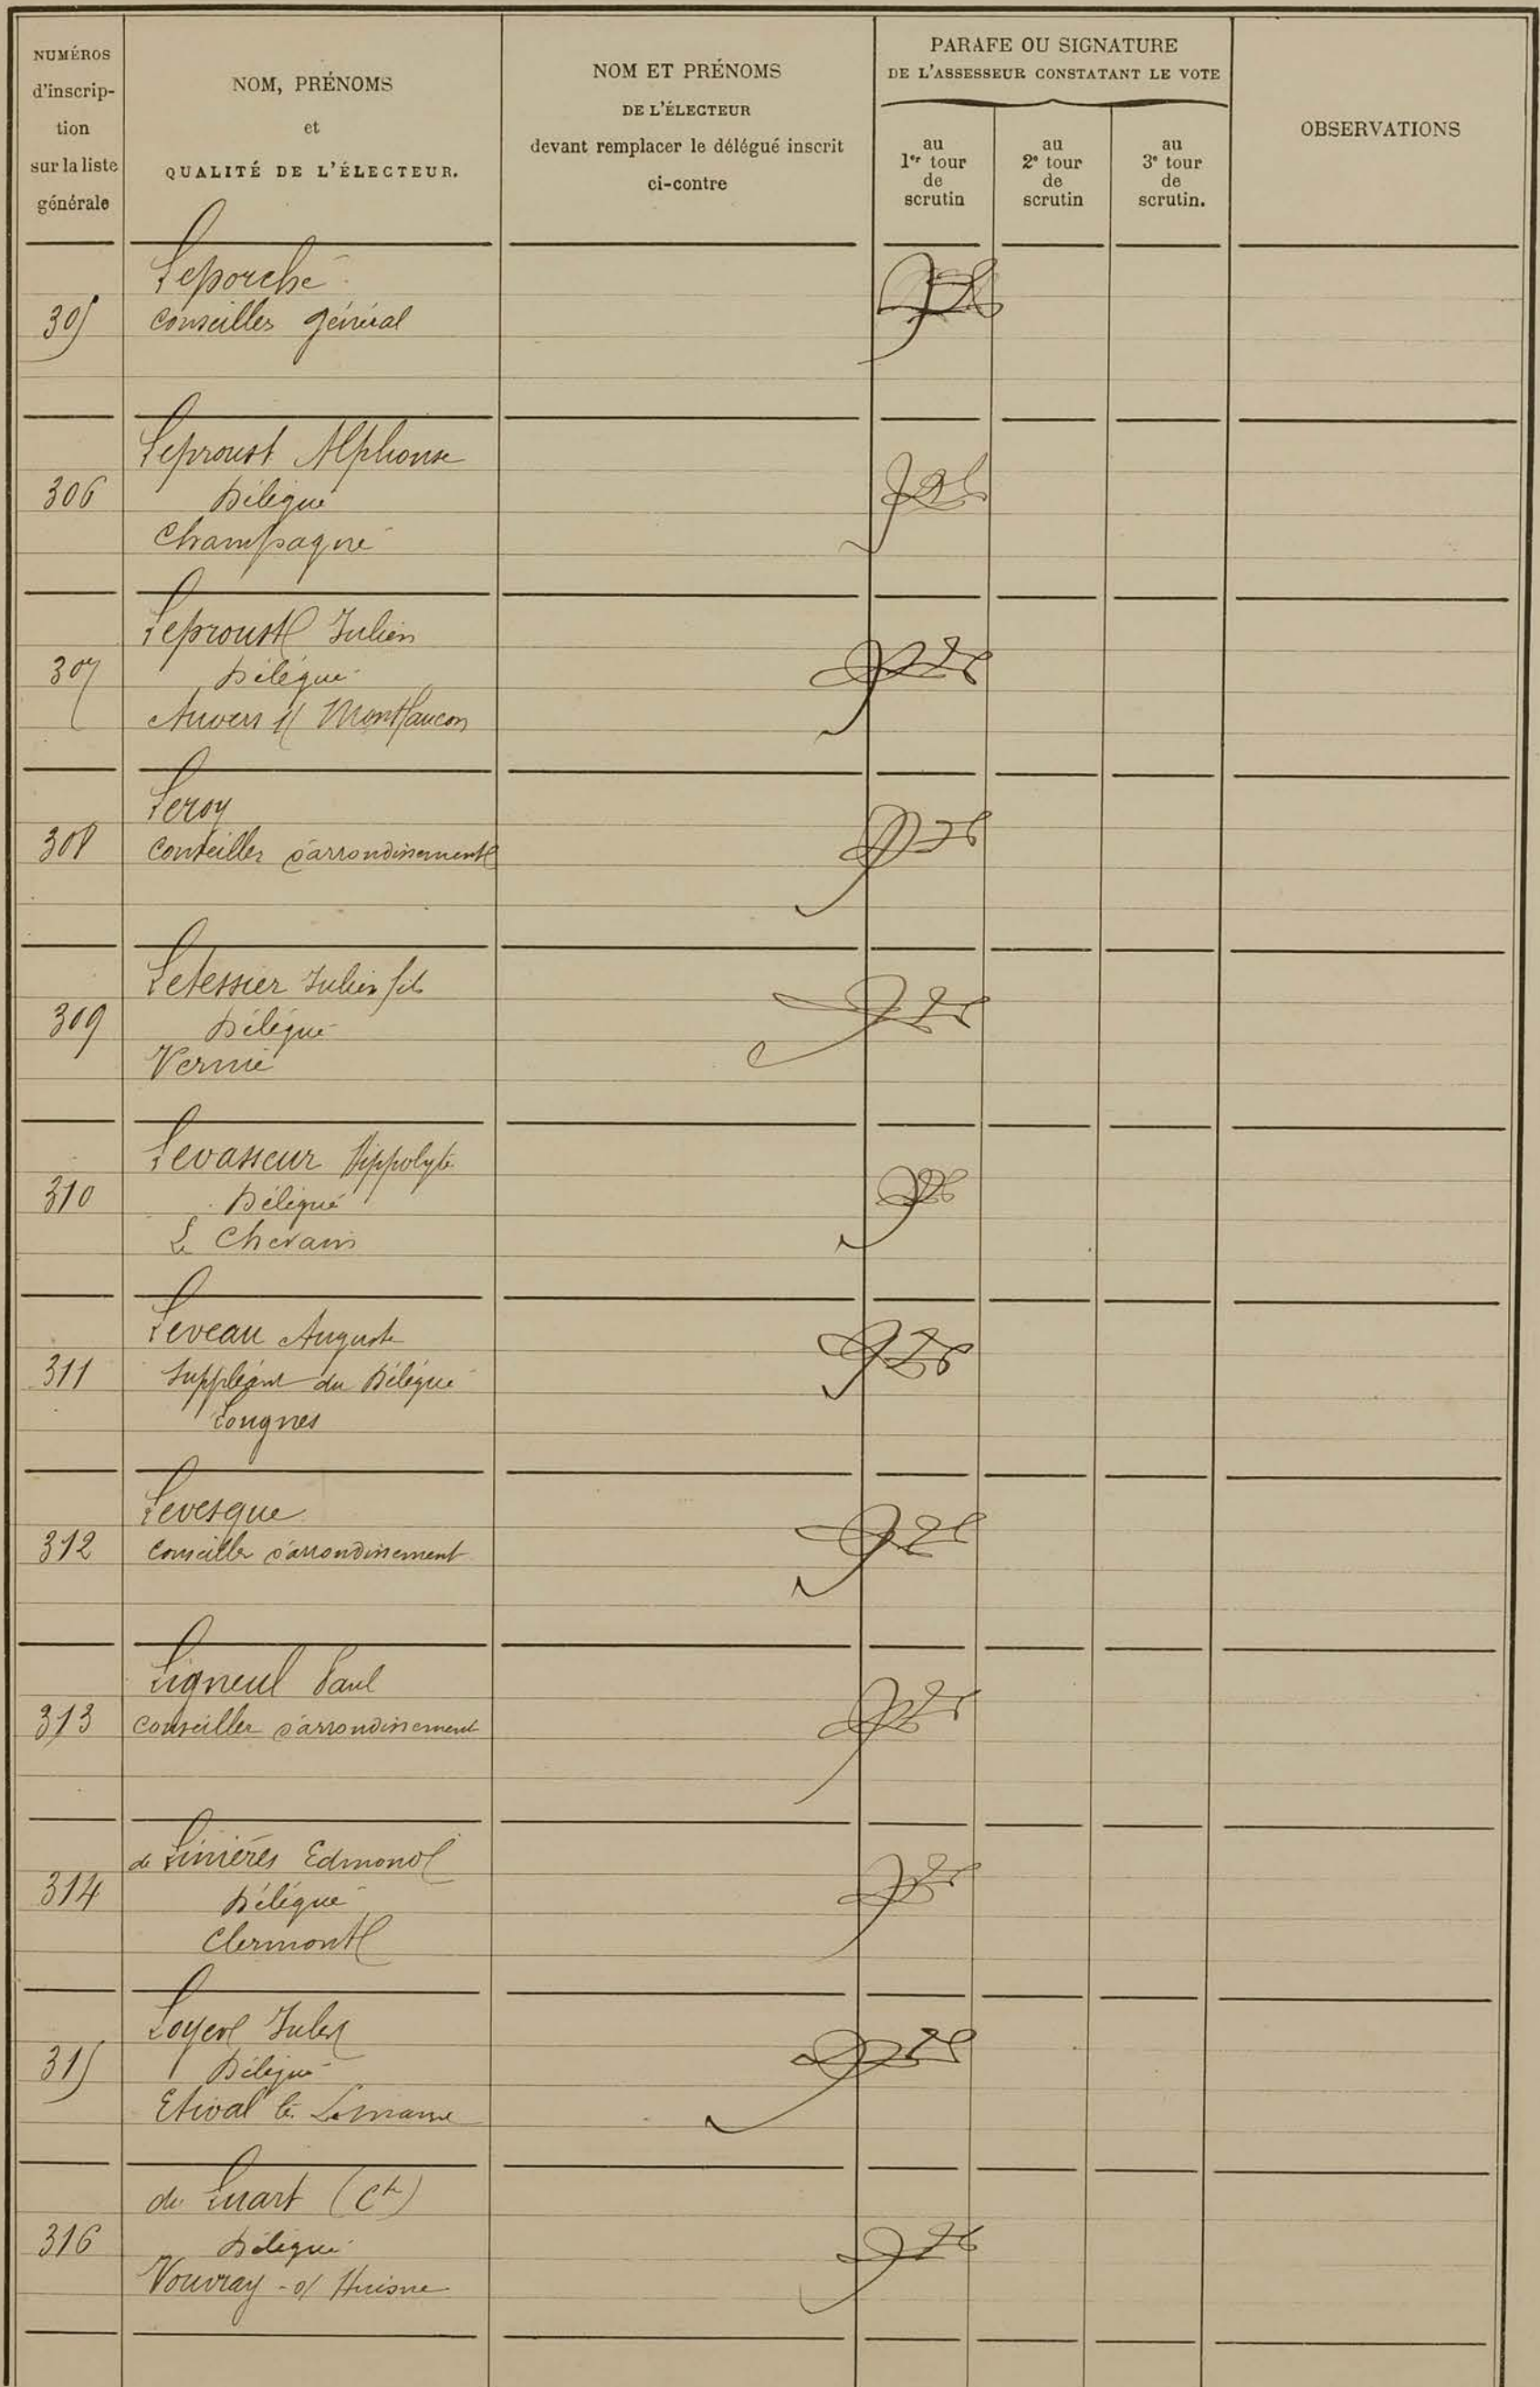 NUMÉROS
d'inscrip-
tion
sur la liste
générale
NOM, PRÉNOMS
et
QUALITÉ DE L'ÉLECTEUR.
NOM ET PRÉNOMS
DE L'ÉLECTEUR
devant remplacer le délégué inscrit
ci-contre
PARAFE OU SIGNATURE
DE L'ASSESSEUR CONSTATANT LE VOTE
au
1er tour
de
scrutin
au
2e tour
de
scrutin
au
3e tour
de
scrutin.
OBSERVATIONS
Leporché
305 Conseiller général
Leproust Alphonse
306 Délégué
Champagné
Leproust Julien
307 Délégué
Auvers s/ Montfaucon
Leroy
308 Conseiller d'arrondissement
Letessier Julien fils
309 Délégué
Vernie
Levasseur Hippolyte
310 Délégué
Le Chevain
Leveau Auguste
311 Suppléant du Délégué
Longnes
Levesque
312 Conseiller d'arrondissement
Ligneul Paul
313 Conseiller d'arrondissement
de Linières Edmond
314 Délégué
Clermont
Loyer Jules
315 Délégué
Etival le
de Luart (Cte)
316 Délégué
Vouvray-s/ Huisne